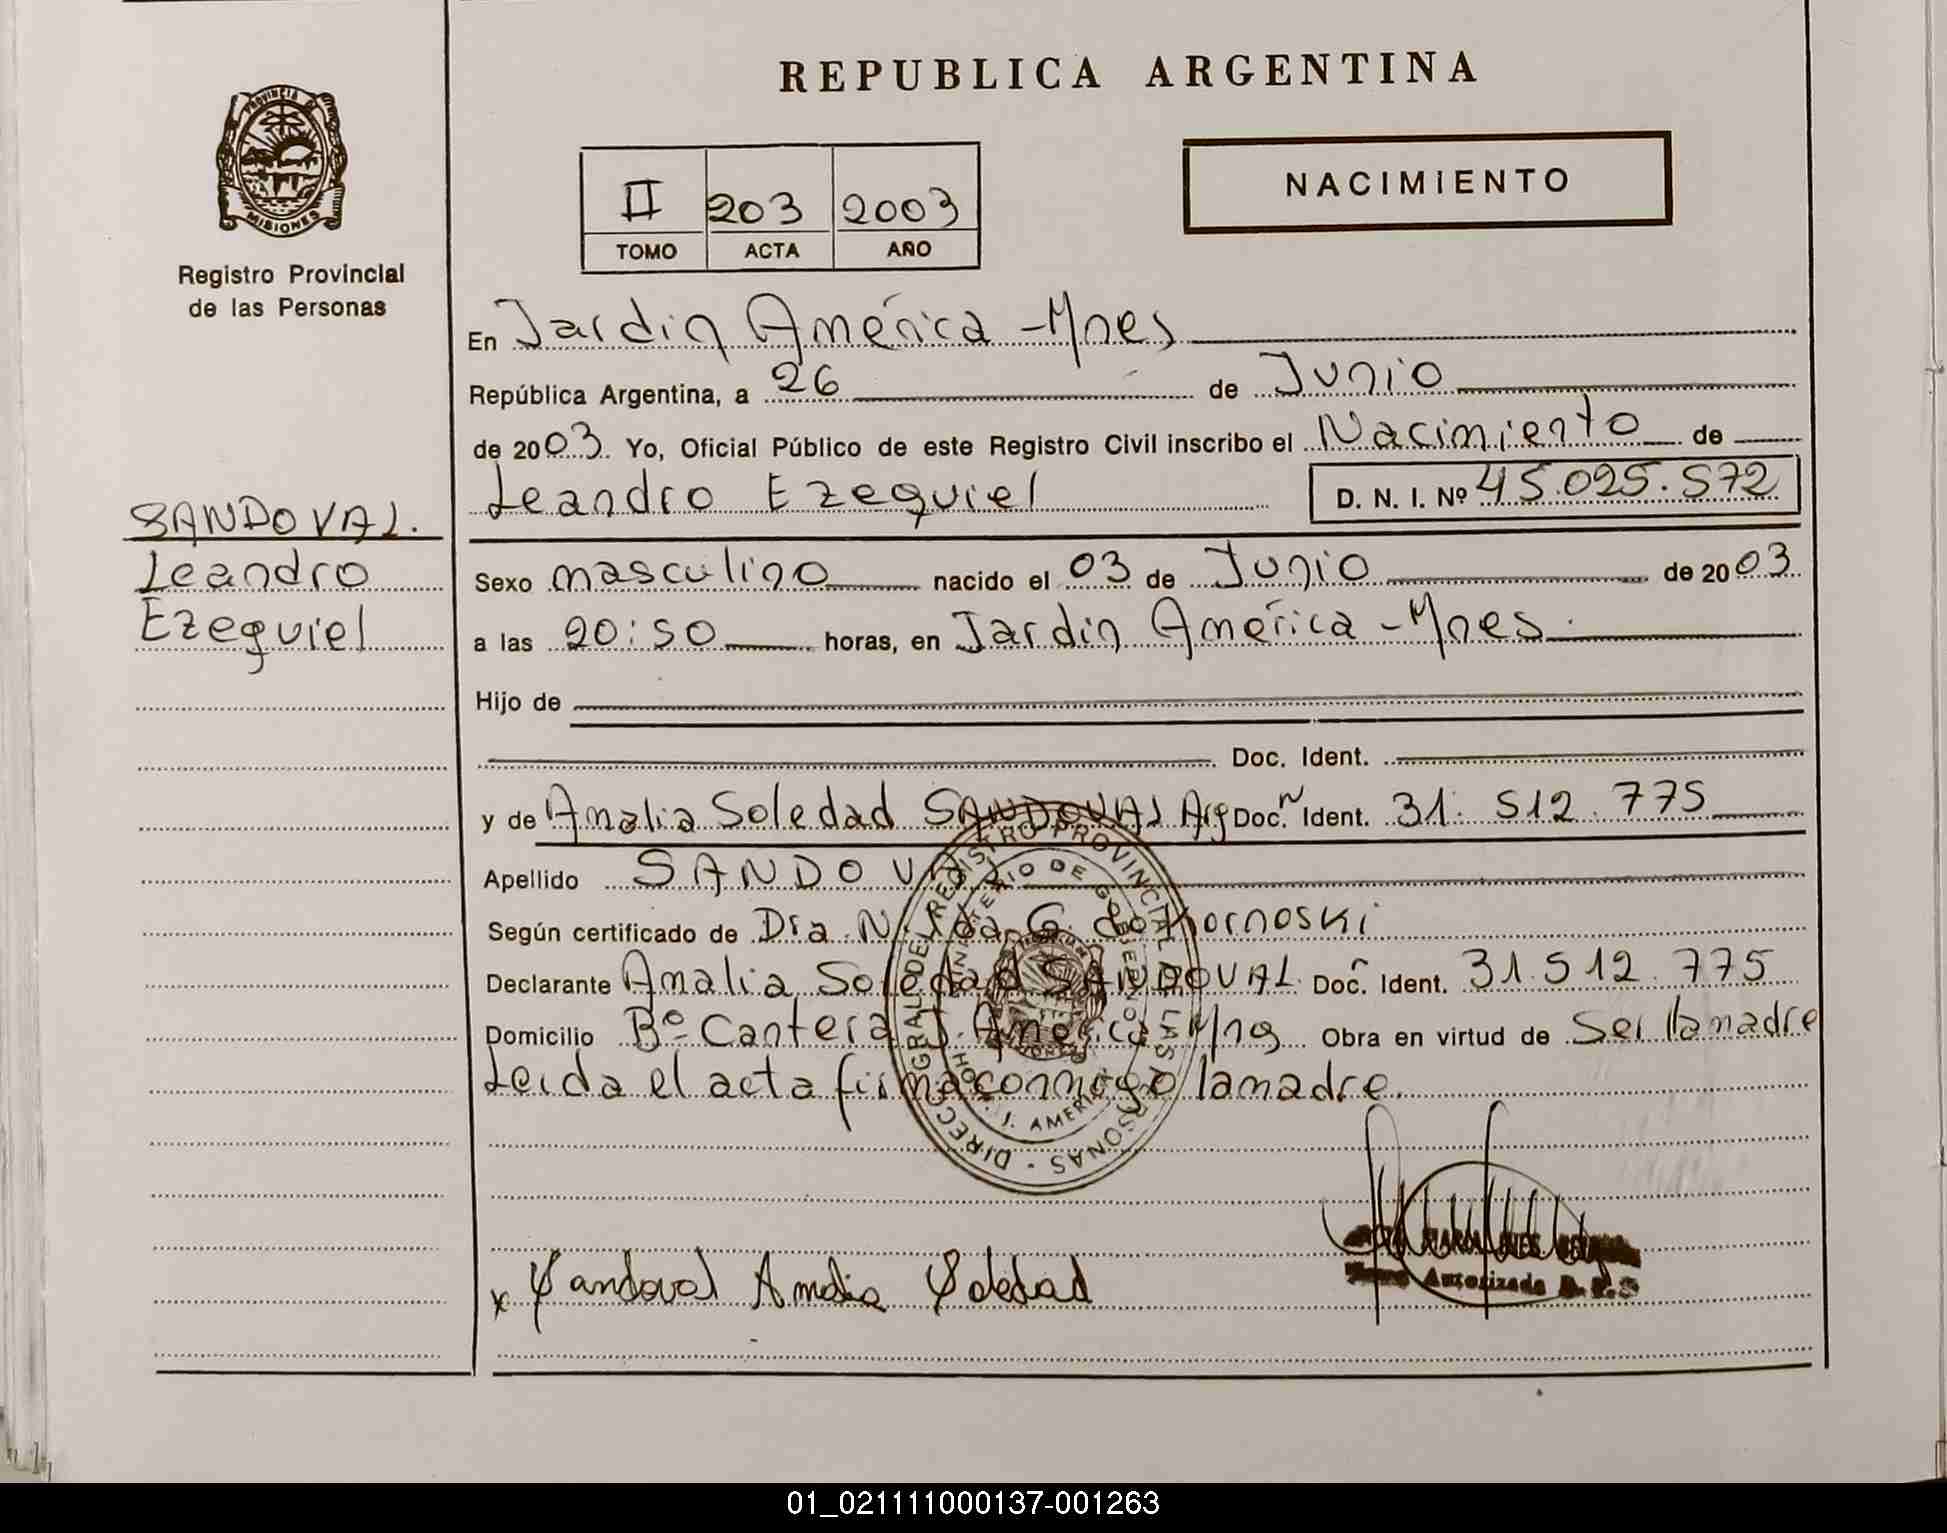 REPUBLICA ARGENTINA
PROVINCIA DE
MISIONES
Registro Provincial
de las Personas
II 203 2003
TOMO ACTA AÑO
NACIMIENTO
En Jardin América - Mnes
República Argentina, a 26 de Junio
de 2003 Yo, Oficial Público de este Registro Civil inscribo el Nacimiento de
Leandro Ezequiel D. N. I. Nº 45.025.572
SANDOVAL.
Leandro
Ezequiel
Sexo masculino nacido el 03 de Junio de 2003
a las 20:50 horas, en Jardin América - Mnes.
Hijo de
Doc. Ident.
y de Amalia Soledad SANDOVAL Arg Doc. Ident. 31.512.775
Apellido SANDOVAL
Según certificado de Dra. Nilda G. de Kornoski
Declarante Amalia Soledad SANDOVAL Doc. Ident. 31.512.775
Domicilio Bº Cantera J. América Mnes Obra en virtud de Ser la madre
Leida el acta firma conmigo la madre.
DIRECC. GRAL. DEL REGISTRO PROVINCIAL DE LAS PERSONAS
MINISTERIO DE GOBIERNO
J. AMERICA
x Sandoval Amalia Soledad
Autorizada
01_021111000137-001263